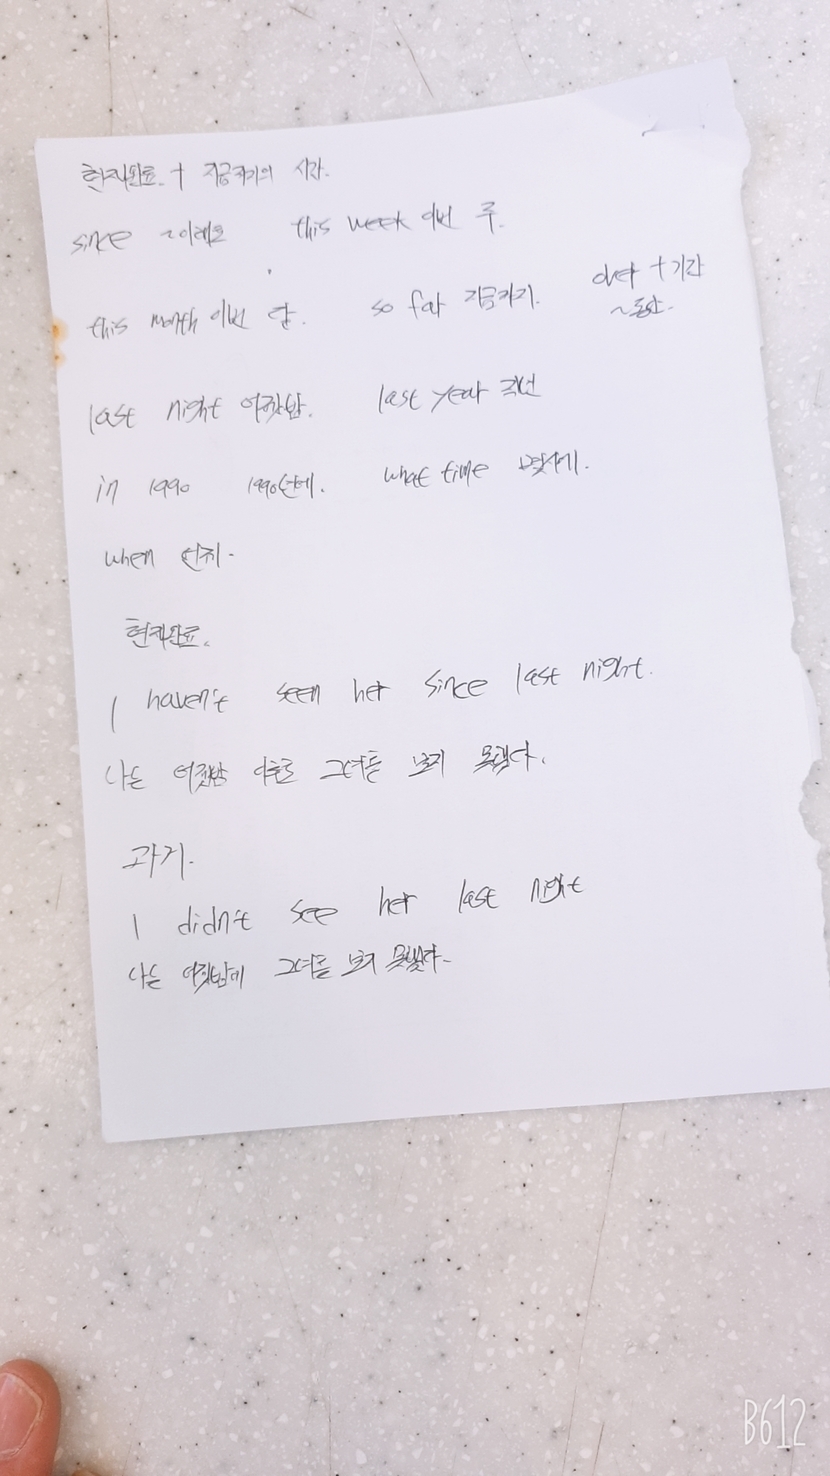 현재완료 + 지금까지의 시간.
since ~이래로 this week 이번 주.
this month 이번 달. so far 지금까지. over + 기간
~동안.
last night 어젯밤. last year 작년
in 1990 1990년에. what time 몇시에.
when 언제.
현재완료.
I haven't seen her since last night.
나는 어젯밤 이후로 그녀를 보지 못했다.
과거.
I didn't see her last night
나는 어젯밤에 그녀를 보지 못했다.
B612